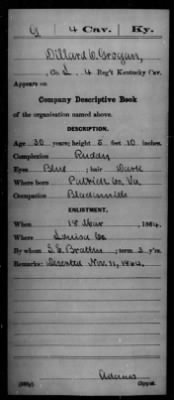 G | 4 Cav. | Ky.
Dillard W. Grogan,
, Co. L, 4 Reg't Kentucky Cav.
Appears on
Company Descriptive Book
of the organization named above.
DESCRIPTION.
Age 30 years; height 5 feet 10 inches.
Complexion Ruddy
Eyes Blue; hair Dark
Where born Patrick Co. Va
Occupation Blacksmith
ENLISTMENT.
When 18 Mar, 1864.
Where Louisa Co.
By whom ; term 3 y'rs.
Remarks: Deserted Nov. 11, 1864.
Adams
Copyist.